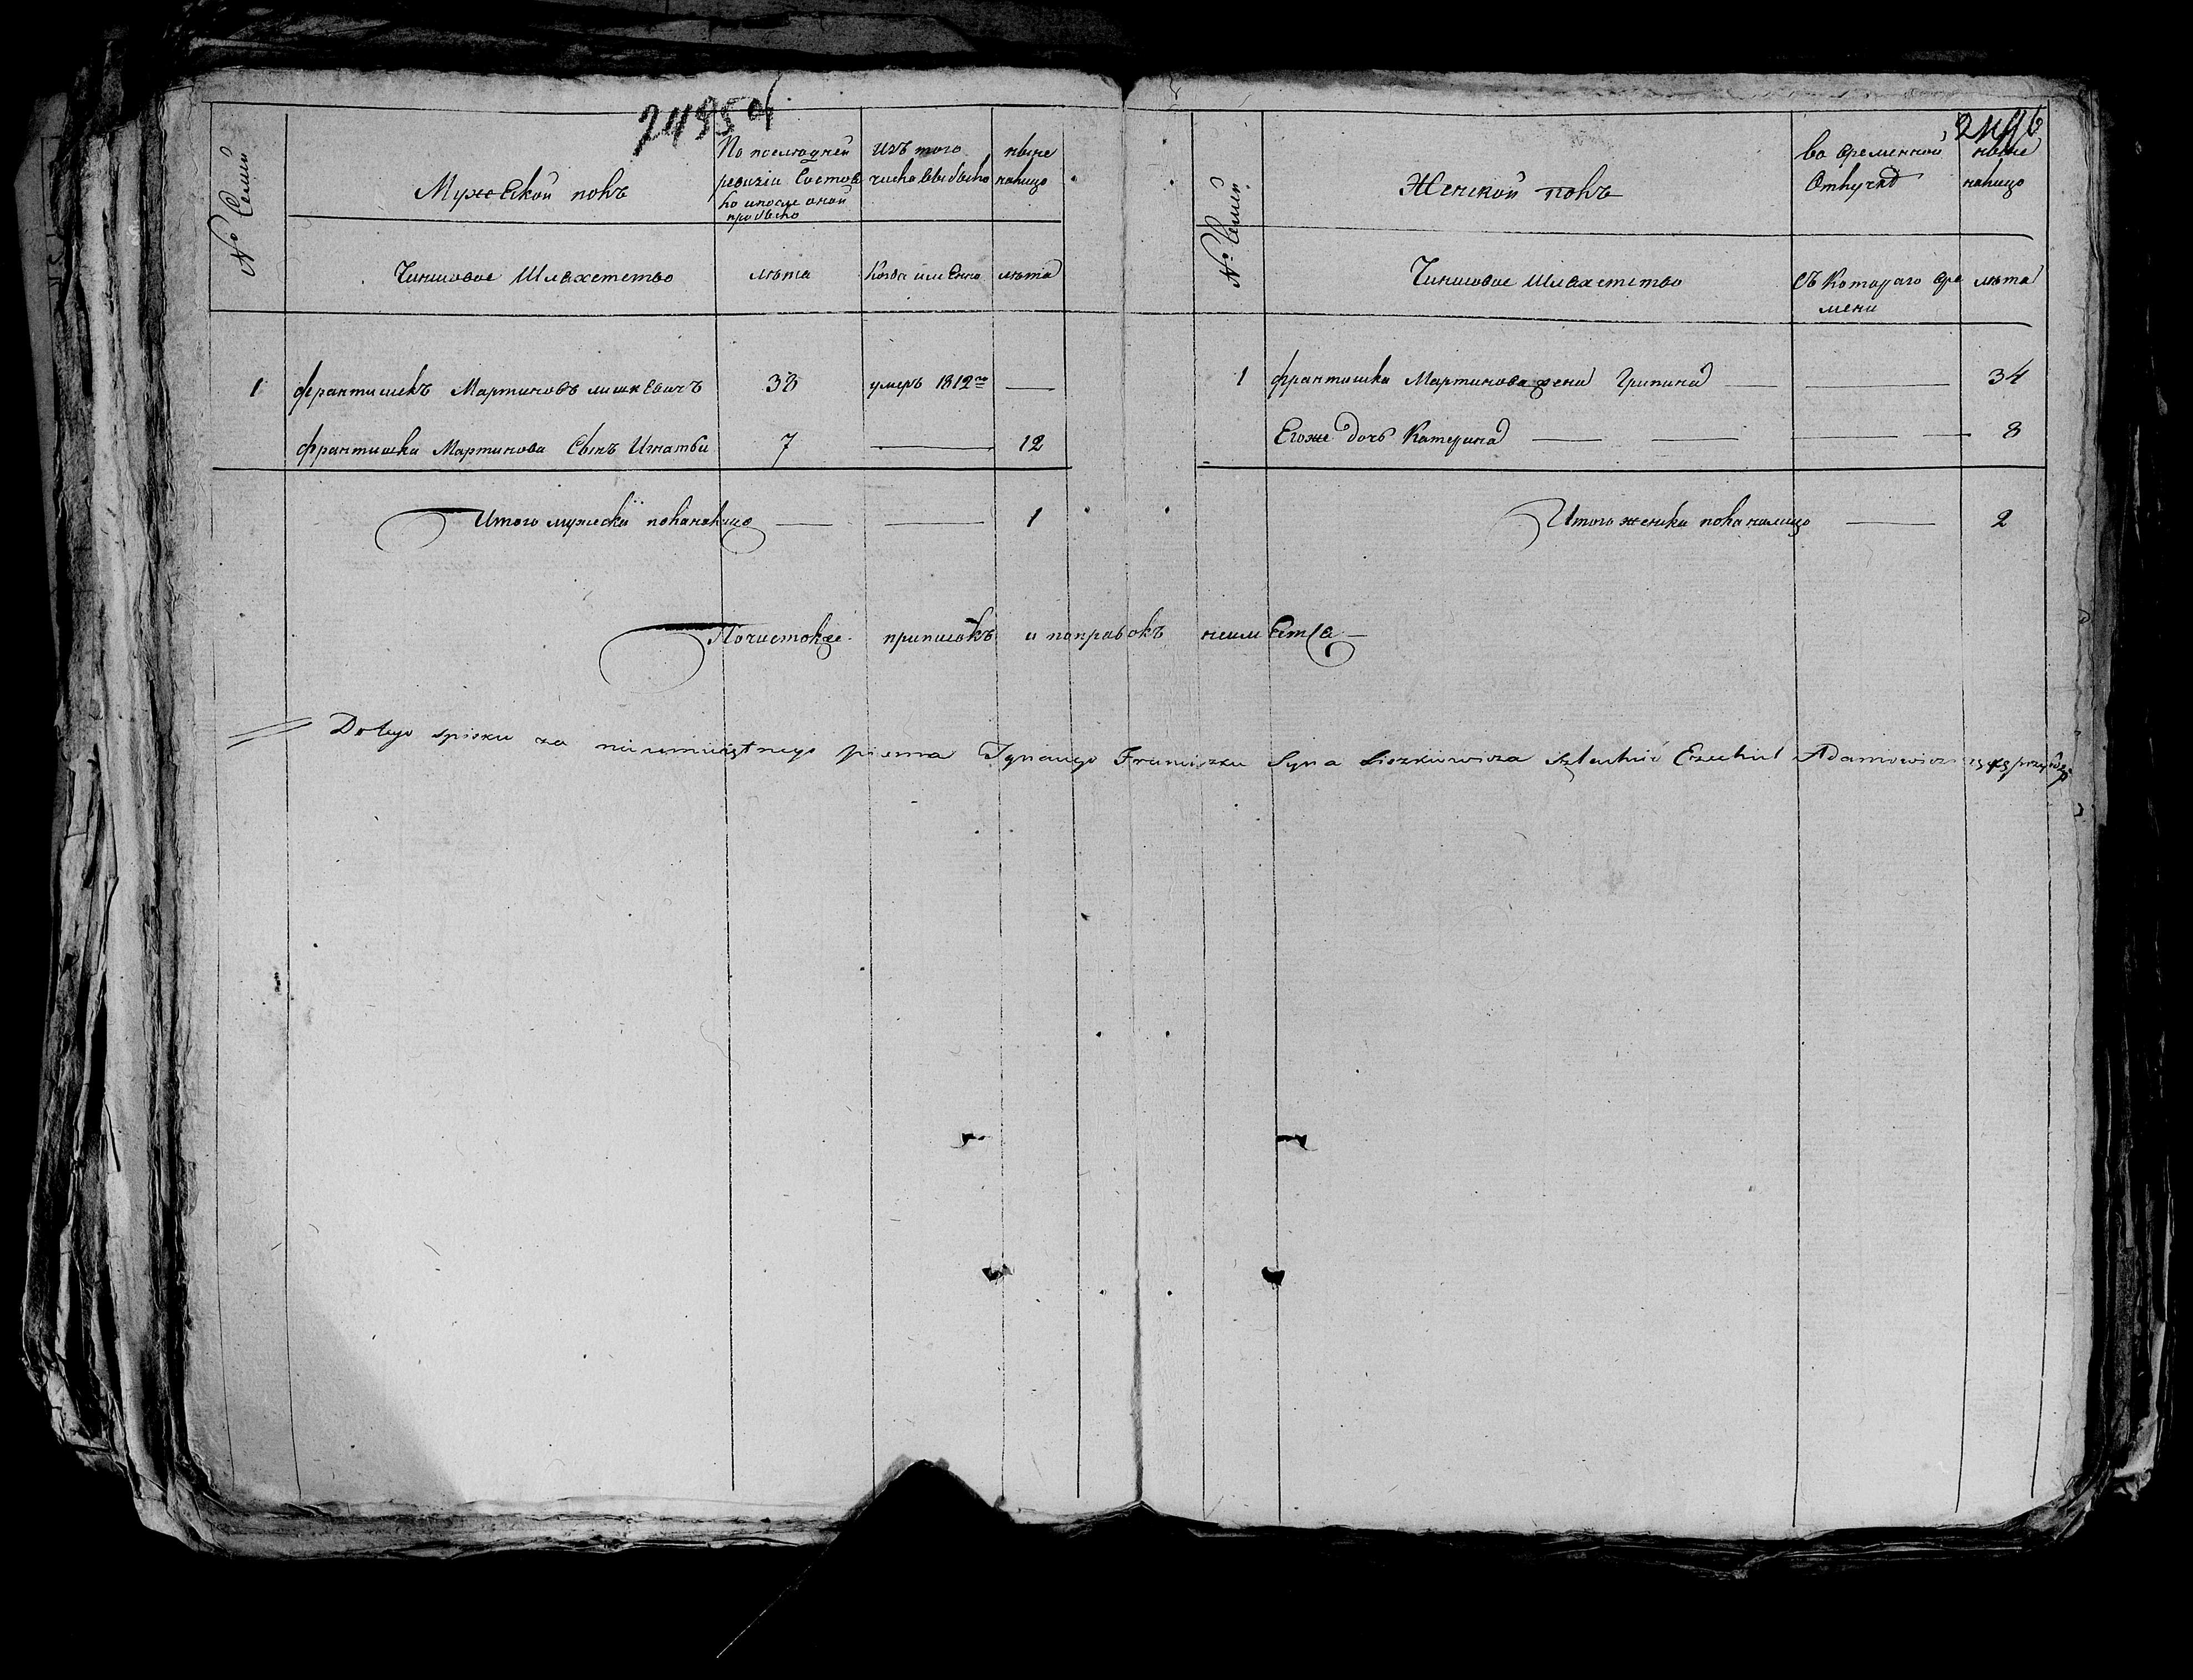 2495 об
2496
№ Семий
Мужеской полъ
По последней ревизіи состояло и после оной прибыло
Изъ того числа выбыло
ныне налицо
Чиншовое Шляхетство
лѣта
Когда именно
лѣта
1 Франтишекъ Мартиновъ лишкевичъ 38 умеръ 1812го —
Франтишка Мартинова Сынъ Игнатъи 7 — 12
Итого мужеска пола налицо — — 1
№ Семий
Женской полъ
во временной Отлучке
ныне налицо
Чиншовое Шляхетство
Съ Котораго вре мени
лѣта
1 Франтишка Мартинова жена Грипина — — 34
Егоже дочь Катерина — — — — 8
Итого женска пола налицо — 2
Почистокъе приписокъ и поправокъ неимеетса —
Do tego spisku za nieumieiętnego pisma Ignacego Franciszka Syna Liszkiewicza szlachcic Ezechiel Adamowicz